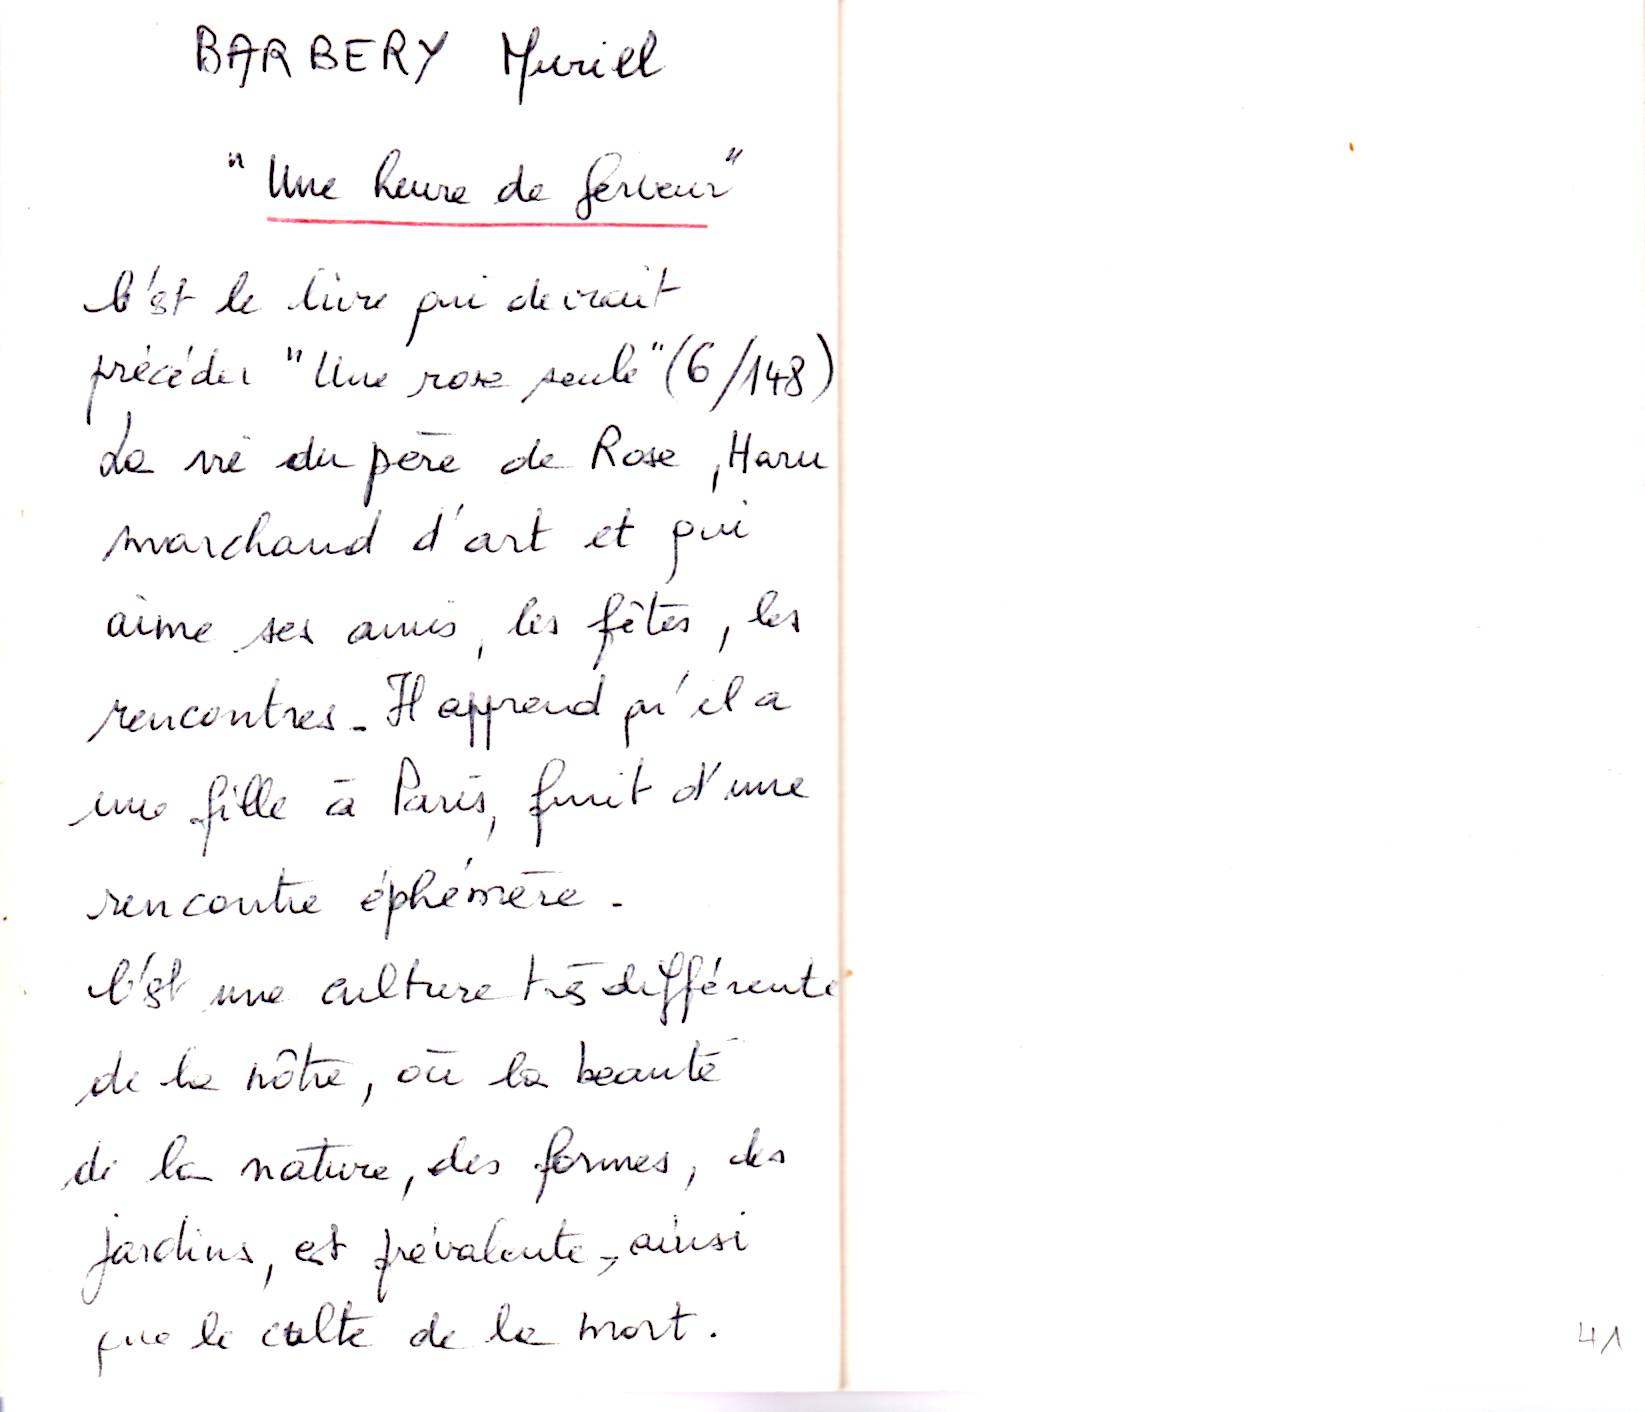 BARBERY Muriel
"Une heure de ferveur"
C'est le livre qui devrait
précéder "Une rose seule" (6/148)
La vie du père de Rose, Haru
marchand d'art et qui
aime ses amis, les fêtes, les
rencontres. Il apprend qu'il a
une fille à Paris, fruit d'une
rencontre éphémère.
C'est une culture très différente
de la nôtre, où la beauté
de la nature, des formes, des
jardins, est prévalente, ainsi
que le culte de la mort.
41